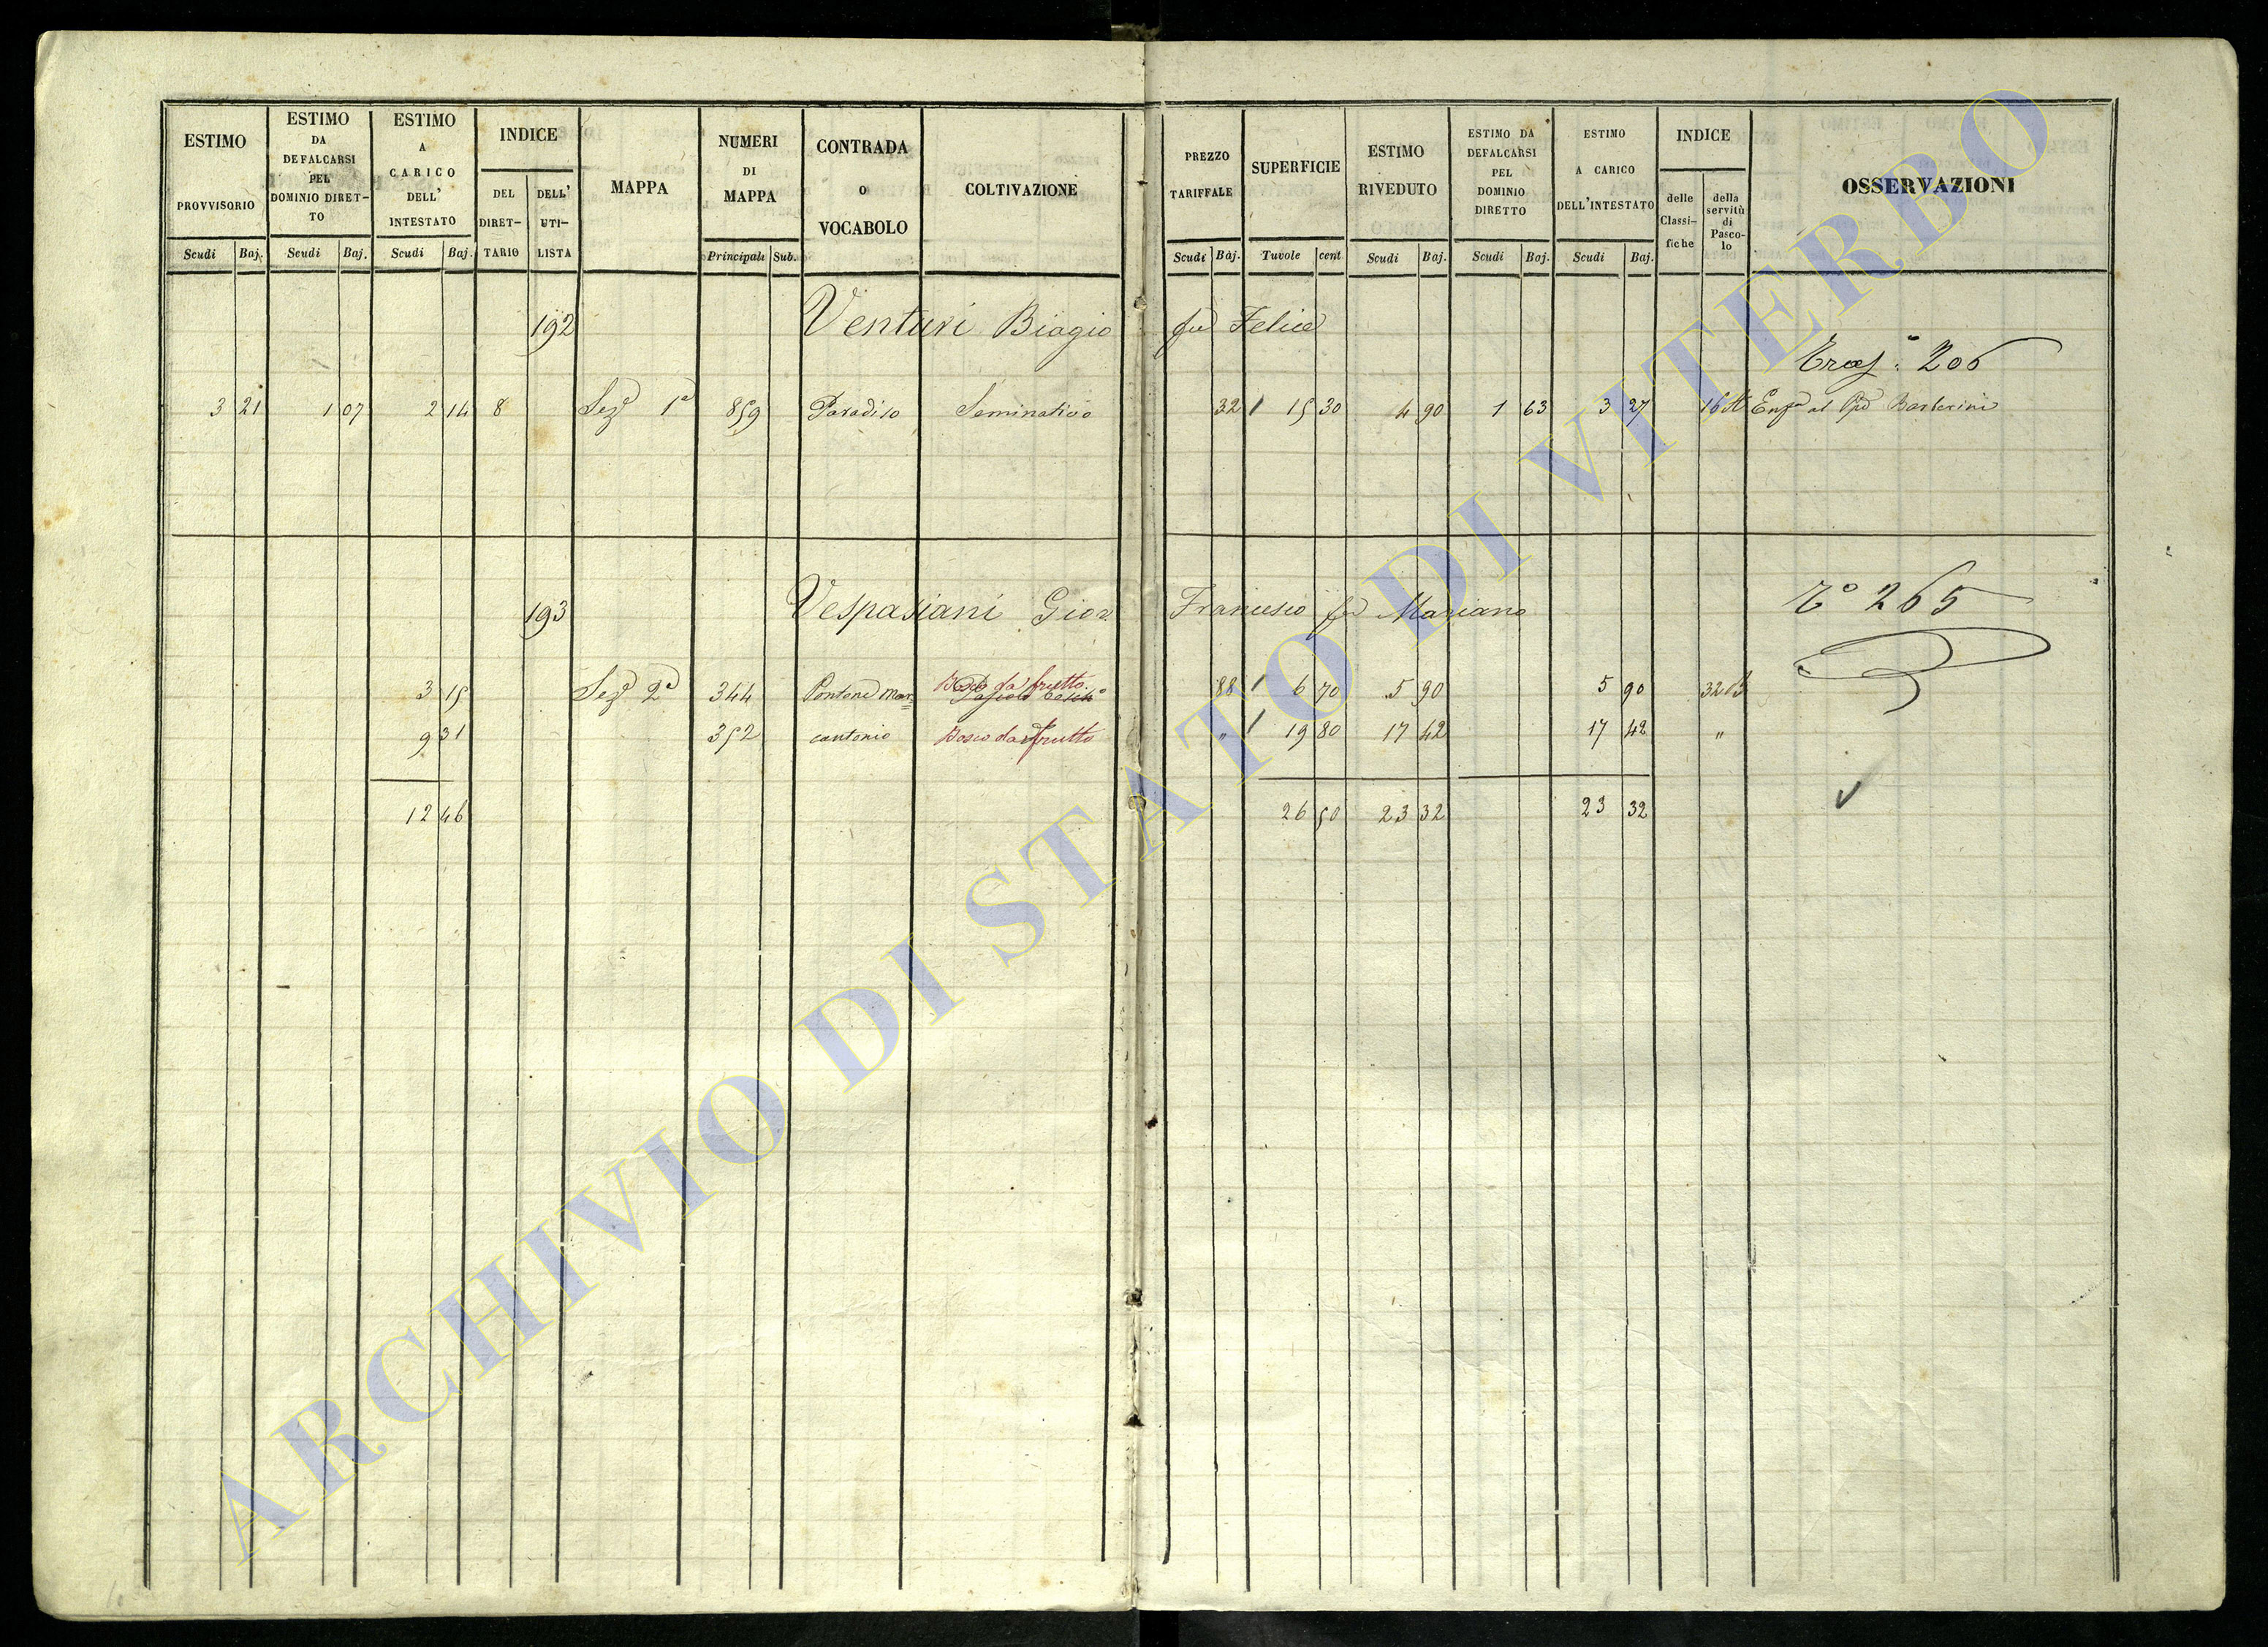 ESTIMO PROVVISORIO
ESTIMO DA DEFALCARSI PEL DOMINIO DIRET-TO
ESTIMO A CARICO DELL' INTESTATO
INDICE
DEL DIRET-TARIO
DELL' UTI-LISTA
MAPPA
NUMERI DI MAPPA
CONTRADA O VOCABOLO
COLTIVAZIONE
PREZZO TARIFFALE
SUPERFICIE
ESTIMO RIVEDUTO
ESTIMO DA DEFALCARSI PEL DOMINIO DIRETTO
ESTIMO A CARICO DELL'INTESTATO
INDICE
delle Classi-fiche
della servitù di Pasco-lo
OSSERVAZIONI
Scudi Baj. Scudi Baj. Scudi Baj. Principali Sub. Scudi Baj. Tavole cent. Scudi Baj. Scudi Baj. Scudi Baj.
192 Venturi Biagio fu Felice
206
3 21 1 07 2 14 8 Sez.e 1a 859 Paradiso Seminativo 32 15 30 4 90 1 63 3 27 16 A Enf.a al Barberini
193 Vespasiani Gior Francesco fu Mariano
To 265
3 15 Sez.e 2a 344 Pontone Mar= Bosco da frutto 88 6 70 5 90 5 90 32 B
9 31 352 cantonio Bosco da frutto " 19 80 17 42 17 42 "
12 46 26 50 23 32 23 32
ARCHIVIO DI STATO DI VITERBO